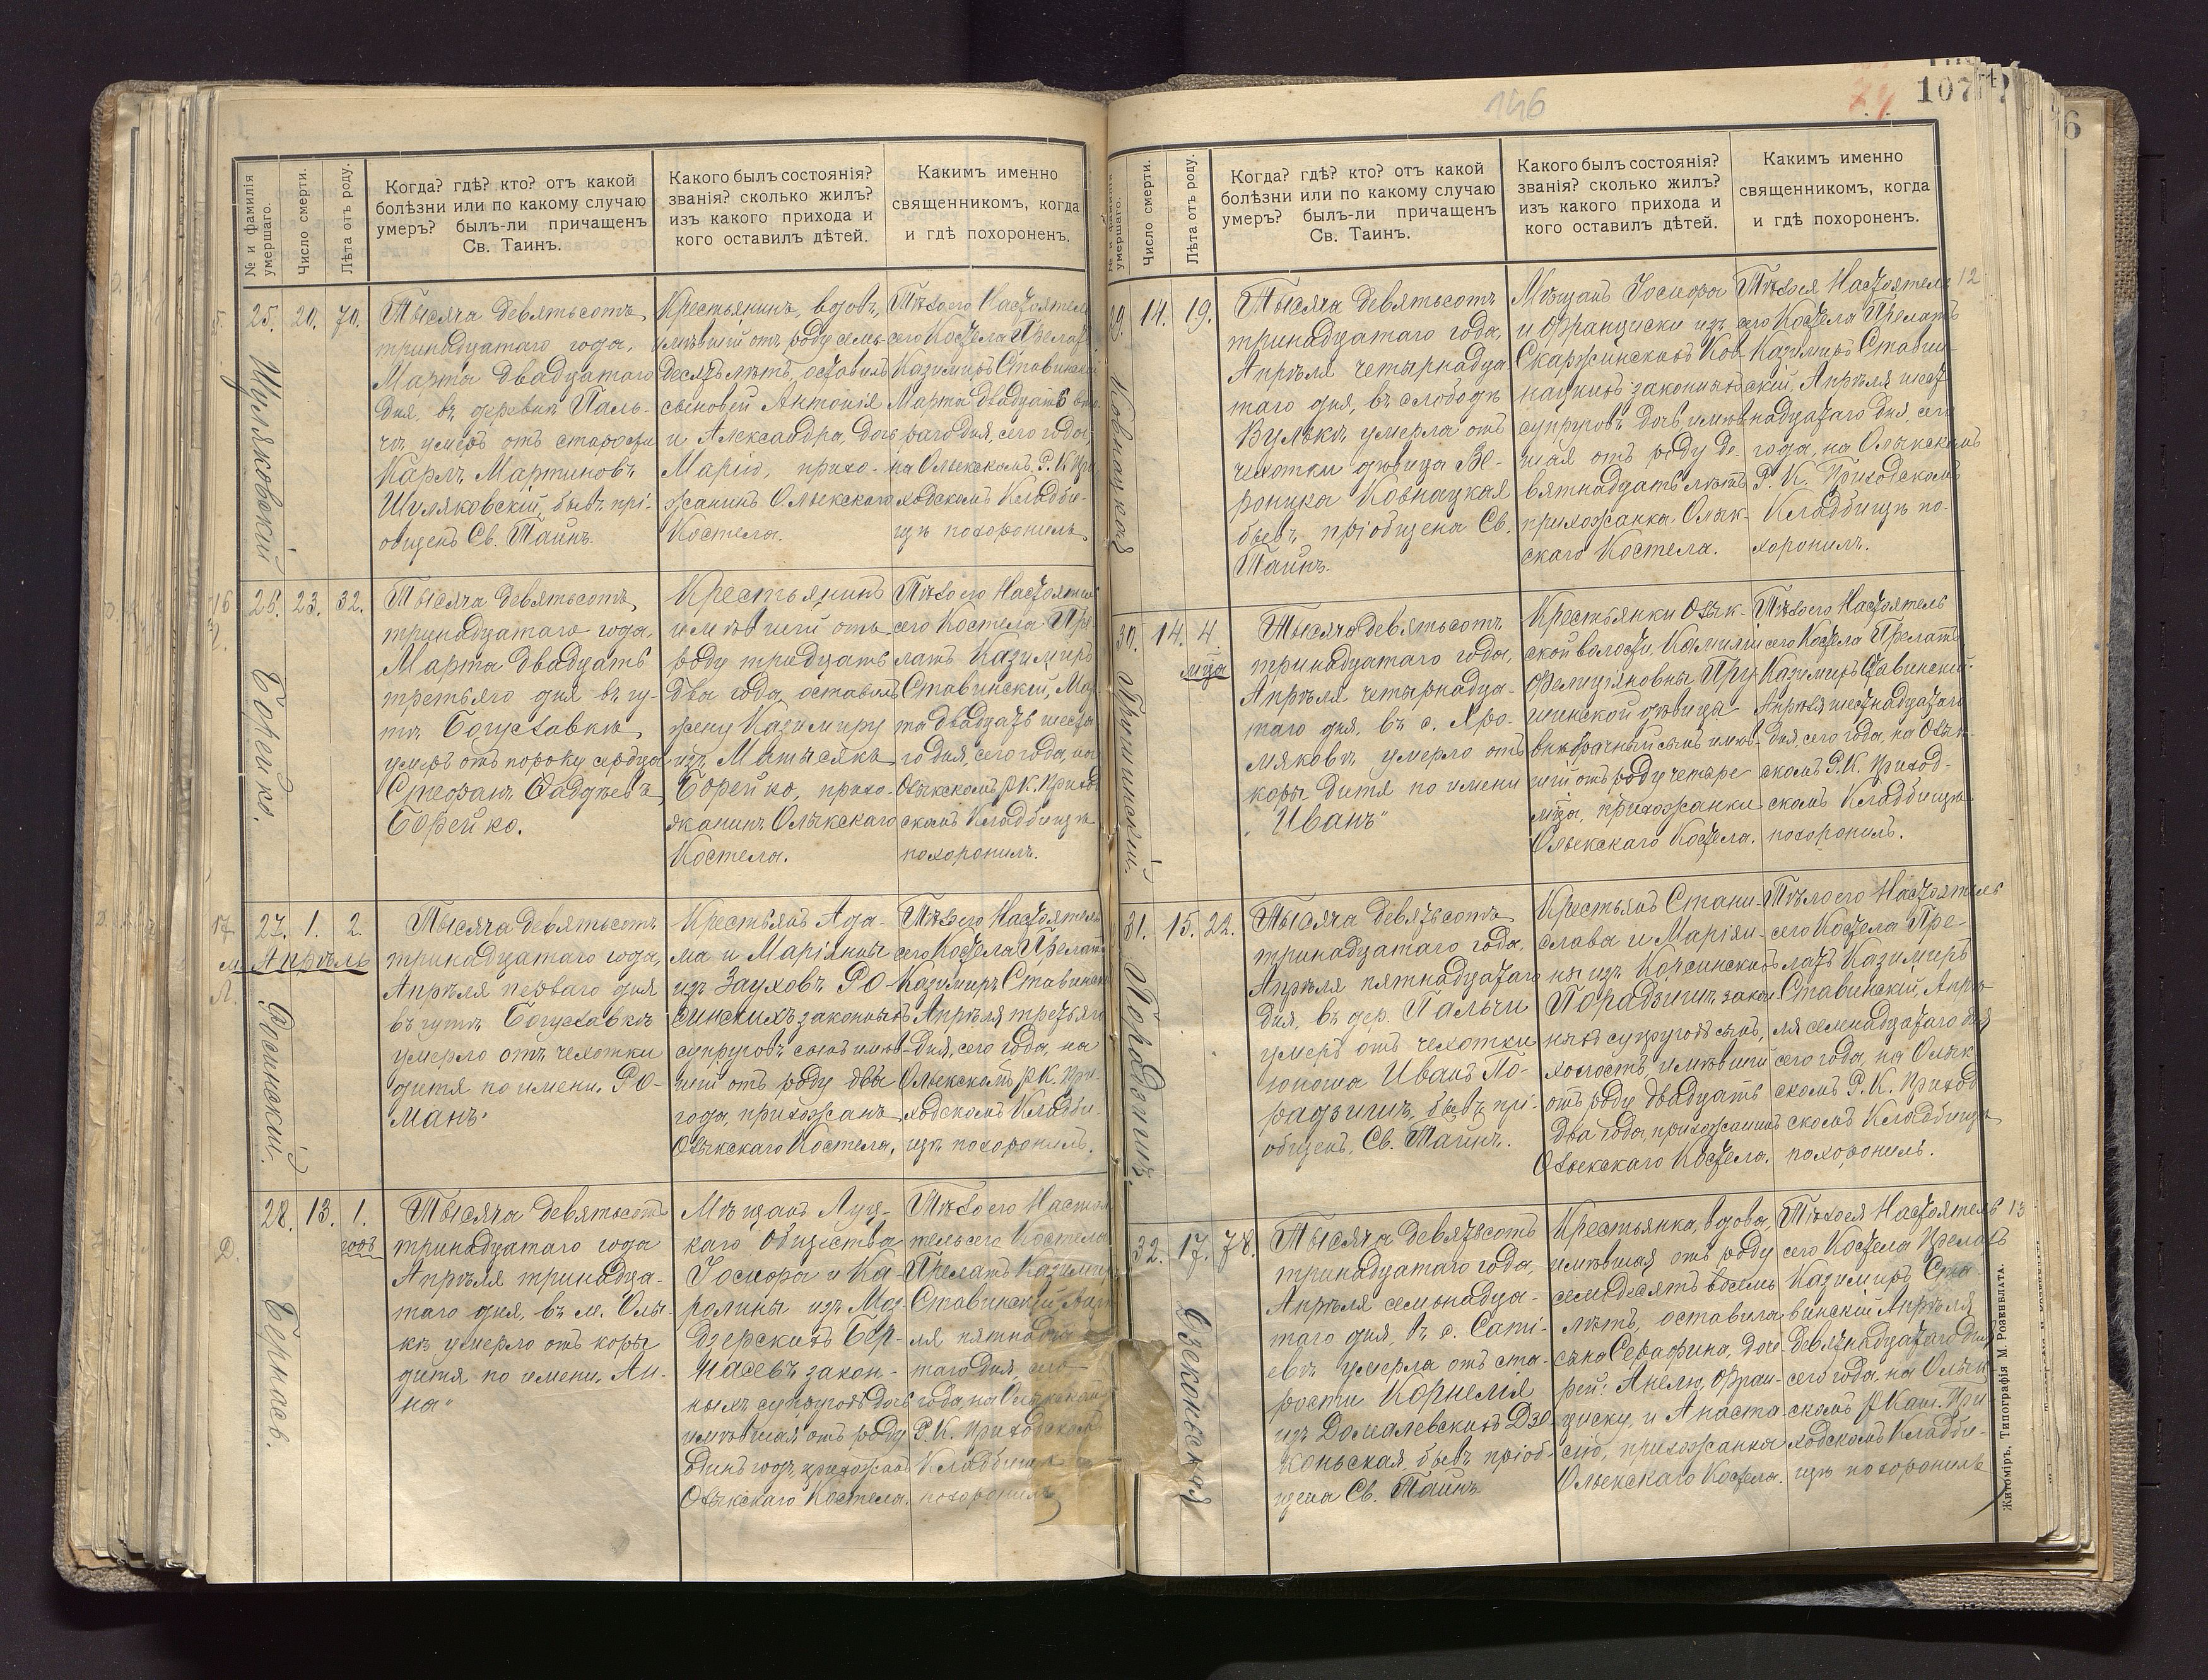 № и фамилія умершаго.
Число смерти.
Лѣта отъ роду.
Когда? гдѣ? кто? отъ какой
болѣзни или по какому случаю
умеръ? былъ-ли причащенъ
Св. Таинъ.
Какого былъ состоянія?
званія? сколько жилъ?
изъ какого прихода и
кого оставилъ дѣтей.
Каким именно
священникомъ, когда
и гдѣ похороненъ.
25. 20. 70.
Шуляковскій
Тысяча девятьсотъ
тринадцатаго года,
Марта двадцатаго
дня, въ деревнѣ Паль-
чѣ умеръ отъ старости
Карлъ Мартиновъ
Шуляковскій, бывъ прі-
общенъ Св. Таинъ.
Крестьянинъ, вдовъ,
имѣвшій отъ роду семь-
десятъ лѣтъ, оставилъ
сыновей Антонія
и Александра, дочь
Марію, прихо-
жанинъ Олыкскаго
Костела.
Тѣло его Настоятель
сего Костела Прелатъ
Казимиръ Ставинскій
Марта двадцать вто-
раго дня, сего года,
на Олыкскомъ Р. К. При-
ходскомъ Кладби-
щѣ похоронилъ
26. 23. 32.
Борейко.
Тысяча девятьсотъ
тринадцатаго года,
Марта двадцать
третьяго дня въ гу-
тѣ Богуславкѣ
умеръ отъ пороку сердца
Стефанъ Фаддѣевъ
Борейко.
Крестьянинъ
имѣвшій отъ
роду тридцать
два года, оставилъ
жену Казимиру
изъ Матысякъ
Борейко, прихо-
жанинъ Олыкскаго
Костела.
Тѣло его Настоятель
сего Костела Пре-
латъ Казимиръ
Ставинскій, Мар-
та двадцать шеста-
го дня, сего года, на
Олыкскомъ Р. К. Приход-
скомъ Кладбищѣ
похоронилъ.
27. 1. 2.
Апрѣль
Росинскій.
Тысяча девятьсотъ
тринадцатаго года,
Апрѣля перваго дня
въ гутѣ Богуславкѣ
умерло отъ чехотки
дитя по имени „Ро-
манъ"
Крестьянъ Ада-
ма и Маріянны
изъ Зауховъ Ро-
синскихъ законныхъ
супруговъ сынъ имѣв-
шій отъ роду два
года, прихожанъ
Олыкскаго Костела.
Тѣло его Настоятель
сего Костела Прелатъ
Казимиръ Ставинскій
Апрѣля третьяго
дня, сего года, на
Олыкскомъ Р. К. При-
ходскомъ Кладби-
щѣ похоронилъ.
28. 13. 1.
годъ
Бернасъ.
Тысяча девятьсотъ
тринадцатаго года
Апрѣля тринадца-
таго дня, въ м. Олы-
кѣ умерло отъ коры
дитя по имени „Ан-
на"
Мѣщанъ Луц-
каго Общества
Іосифа и Ка-
ролины изъ Маз-
дзерскихъ Бер-
насевъ закон-
ныхъ супруговъ дочь
имѣвшая отъ роду
одинъ годъ, прихожанъ
Олыкскаго Костела.
Тѣло его Настоя-
тель сего Костела
Прелатъ Казимиръ
Ставинскій Апрѣ-
ля пятнадца-
таго дня, сего
года, на Олыкскомъ
Р. К. Приходскомъ
Кладбищѣ
похоронилъ
146
107
№ и фамилія умершаго.
Число смерти.
Лѣта отъ роду.
Когда? гдѣ? кто? отъ какой
болѣзни или по какому случаю
умеръ? былъ-ли причащенъ
Св. Таинъ.
Какого былъ состоянія?
званія? сколько жилъ?
изъ какого прихода и
кого оставилъ дѣтей.
Каким именно
священникомъ, когда
и гдѣ похороненъ.
29. 14. 19.
Ковнацкая
Тысяча девятьсотъ
тринадцатаго года,
Апрѣля четырнадца-
таго дня, въ слободѣ
Вулькѣ умерла отъ
чехотки дѣвица Ве-
роника Ковнацкая
бывъ пріобщена Св.
Таинъ.
Мѣщанъ Іосифа
и Франциски изъ
Скаржинскихъ Ков-
нацкихъ законныхъ
супруговъ дочь, имѣв-
шая отъ роду де-
вятнадцать лѣтъ
прихожанка Олык-
скаго Костела.
Тѣло ея Настоятель 12
сего Костела Прелатъ
Казимиръ Ставин-
скій, Апрѣля шест-
надцатаго дня, сего
года, на Олыкскомъ
Р. К. Приходскомъ
Кладбищѣ по-
хоронилъ.
30. 14. 4
мца
Прушинскій.
Тысяча девятьсотъ
тринадцатаго года,
Апрѣля четырнадца-
таго дня, въ с. Хро-
мяковѣ умерло отъ
коры дитя по имени
„Иванъ"
Крестьянки Олык-
ской волости, Камилии
Фелиціяновны Пру-
шинской дѣвица
внѣбрачный сынъ имѣв-
шій отъ роду четыре
мца, прихожанки
Олыкскаго Костела.
Тѣло его Настоятель
сего Костела Прелатъ
Казимиръ Ставинскій
Апрѣля шестнадцатаго
дня, сего года, на Олык-
скомъ Р. К. Приход-
скомъ Кладбищѣ
похоронилъ.
31. 15. 22.
Порадзишъ.
Тысяча девятьсотъ
тринадцатаго года,
Апрѣля пятнадцатаго
дня, въ дер. Пальчи
умеръ отъ чехотки
юноша Иванъ По-
радзишъ, бывъ прі-
общенъ Св. Таинъ.
Крестьянъ Стани-
слава и Маріян-
ны изъ Корсинскихъ
Порадзишъ закон-
ныхъ супруговъ сынъ,
холостъ, имѣвшій
отъ роду двадцать
два года, прихожанинъ
Олыкскаго Костела.
Тѣло его Настоятель
сего Костела Пре-
латъ Казимиръ
Ставинскій, Апрѣ-
ля семнадцатаго дня
сего года, на Олык-
скомъ Р. К. Приход-
скомъ Кладбищѣ
похоронилъ.
32. 17. 78.
Дзеконьская
Тысяча девятьсотъ
тринадцатаго года,
Апрѣля семьнадца-
таго дня, въ с. Саті-
евѣ умерла отъ ста-
рости Корнелія
изъ Домалевскихъ Дзе-
коньская бывъ пріоб-
щена Св. Таинъ
Крестьянка, вдова,
имѣвшая отъ роду
семьдесятъ восемь
лѣтъ, оставила
сына Серафина, доче-
рей: Анелю, Фран-
циску, и Анаста-
сію, прихожанка
Олыкскаго Костела.
Тѣло ея Настоятель 13
сего Костела Прелатъ
Казимиръ Ста-
винскій Апрѣля
девятнадцатаго дня
сего года, на Олык-
скомъ Р. Кат. При-
ходскомъ Кладби-
щѣ похоронилъ
Житоміръ, Типографія М. Розенблата.